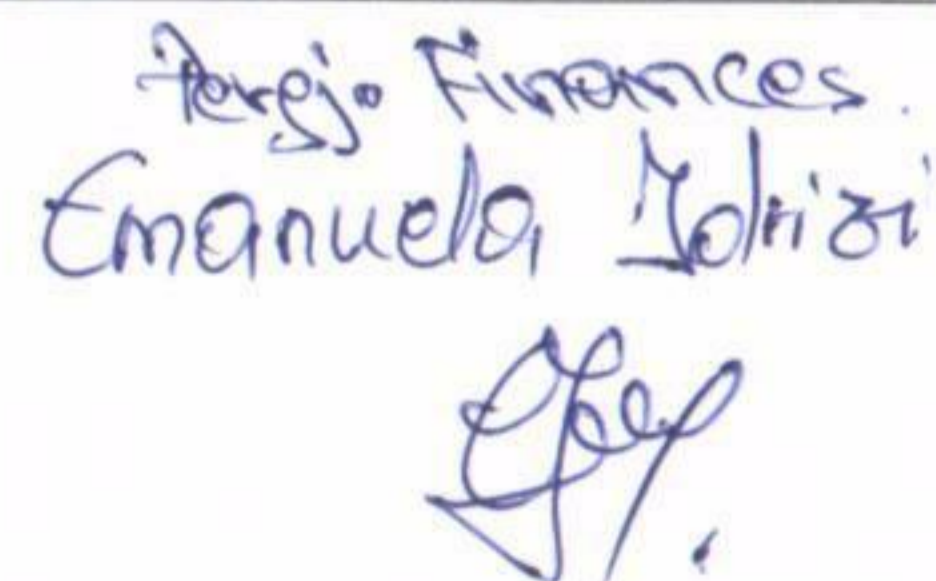 Pergj. Finances.
Emanuela Idrizi